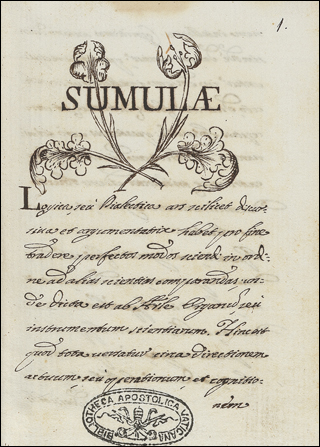 1.
SUMULÆ
Logica seu Dialectica ars scilicet discur-
siva et argumentatrix habet pro fine
tradere perfectos modos sciendi in ordi-
ne ad alias scientias comparandas un-
de dicta est ab Arile Organum seu
instrumentum scientiarum. Hinc est
quod tota versatur circa directionem
actuum, seu operationum et cognitio-
num
BIBLIOTHECA APOSTOLICA VATICANA